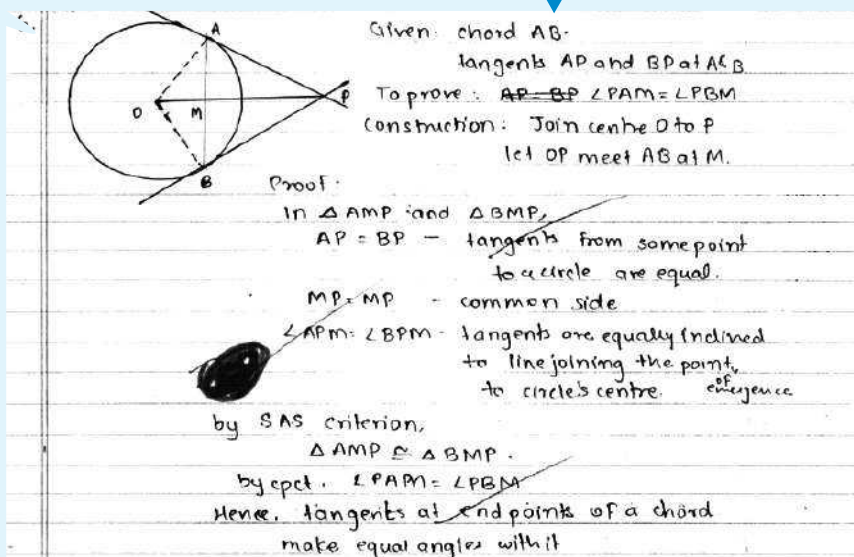 A
O M P
B
Given: chord AB.
tangents AP and BP at A & B
To prove: AP = BP ∠PAM = ∠PBM
construction: Join centre O to P
let OP meet AB at M.
Proof:
In △ AMP and △ BMP,
AP = BP - tangents from same point
to a circle are equal.
MP = MP - common side
∠APM = ∠BPM - tangents are equally inclined
to line joining the point of emergence
to circle's centre.
by SAS criterion,
△ AMP ≅ △ BMP.
by cpct. ∠PAM = ∠PBM
Hence, tangents at end points of a chord
make equal angles with it